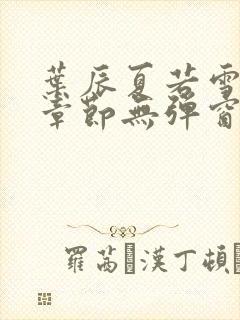 葉辰夏若雪
章節無彈窗
羅茜·漢丁頓·